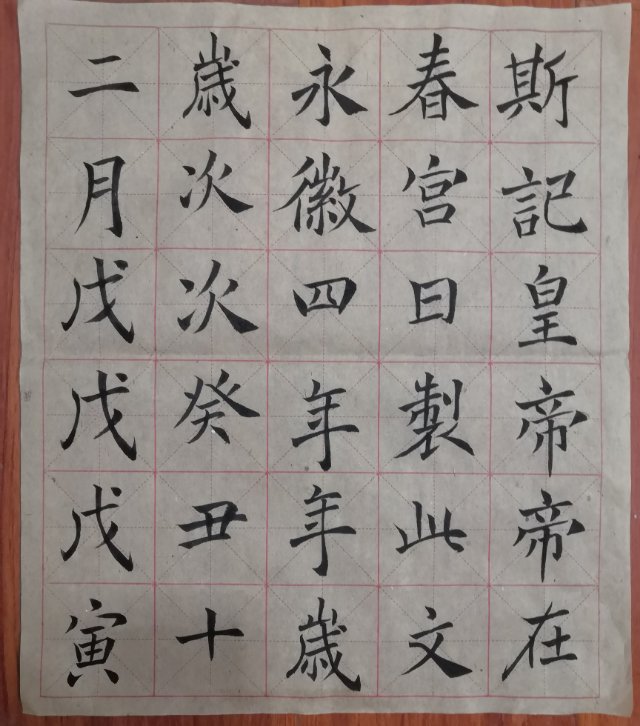 斯記皇帝帝在
春宮日製此文
永徽四年年歲
歲次次癸丑十
二月戊戊戊寅